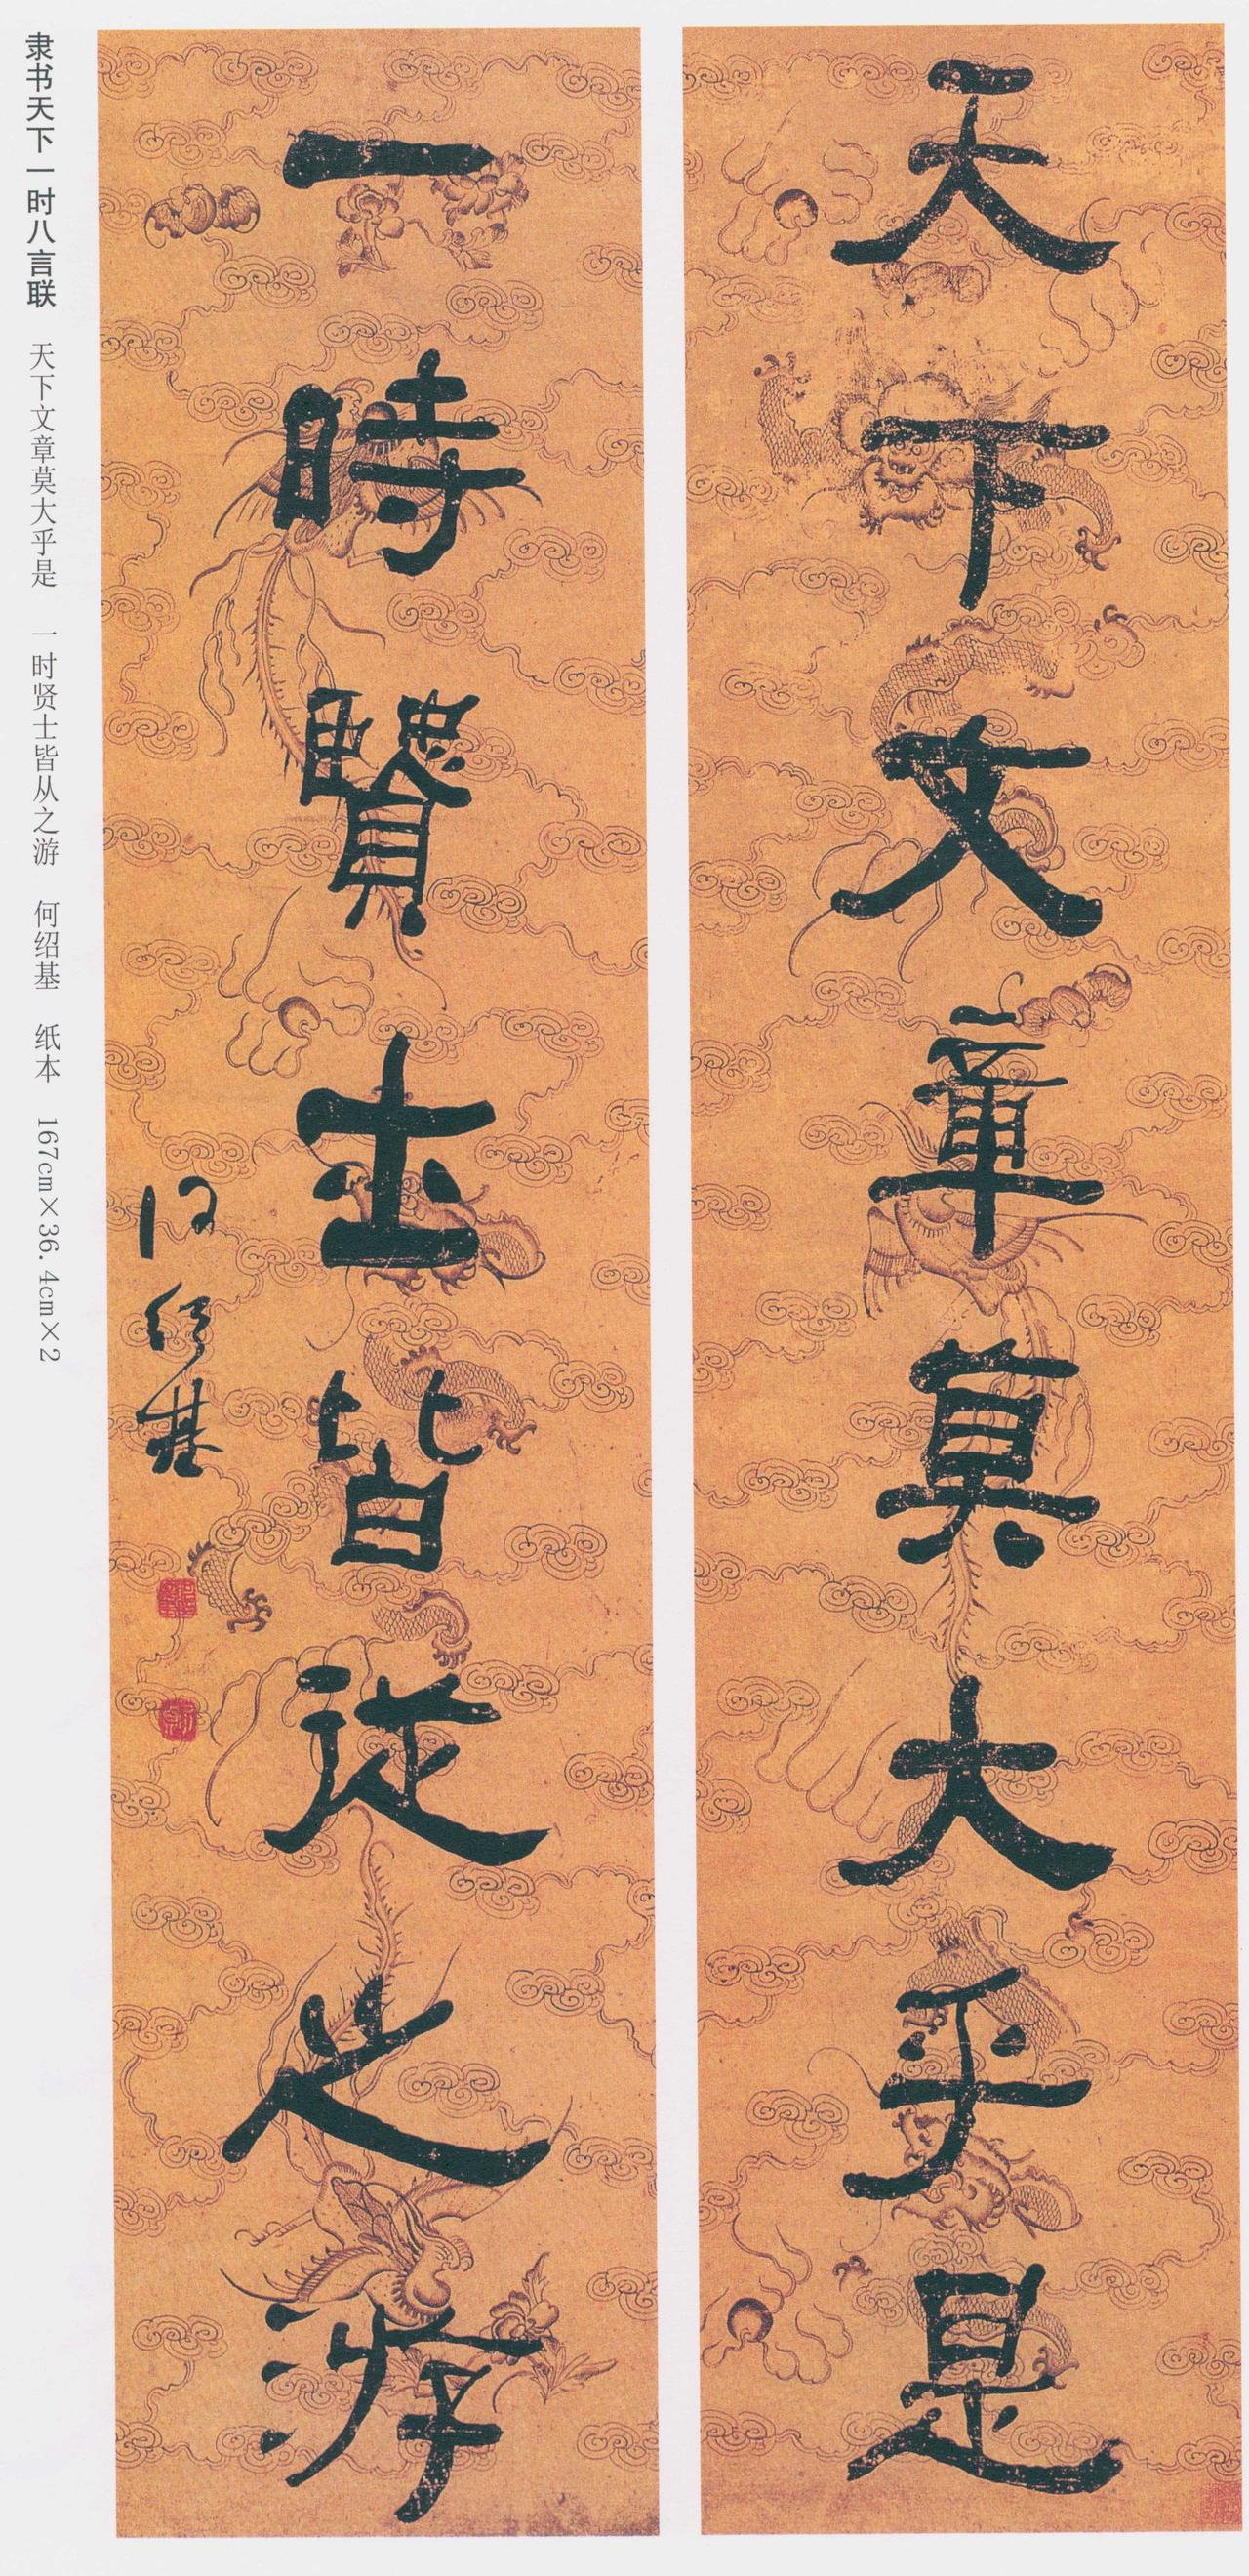 天下文章莫大乎是
一時賢士皆從之游
何紹基
隶书天下一时八言联 天下文章莫大乎是 一时贤士皆从之游 何绍基 纸本 167cm×36.4cm×2